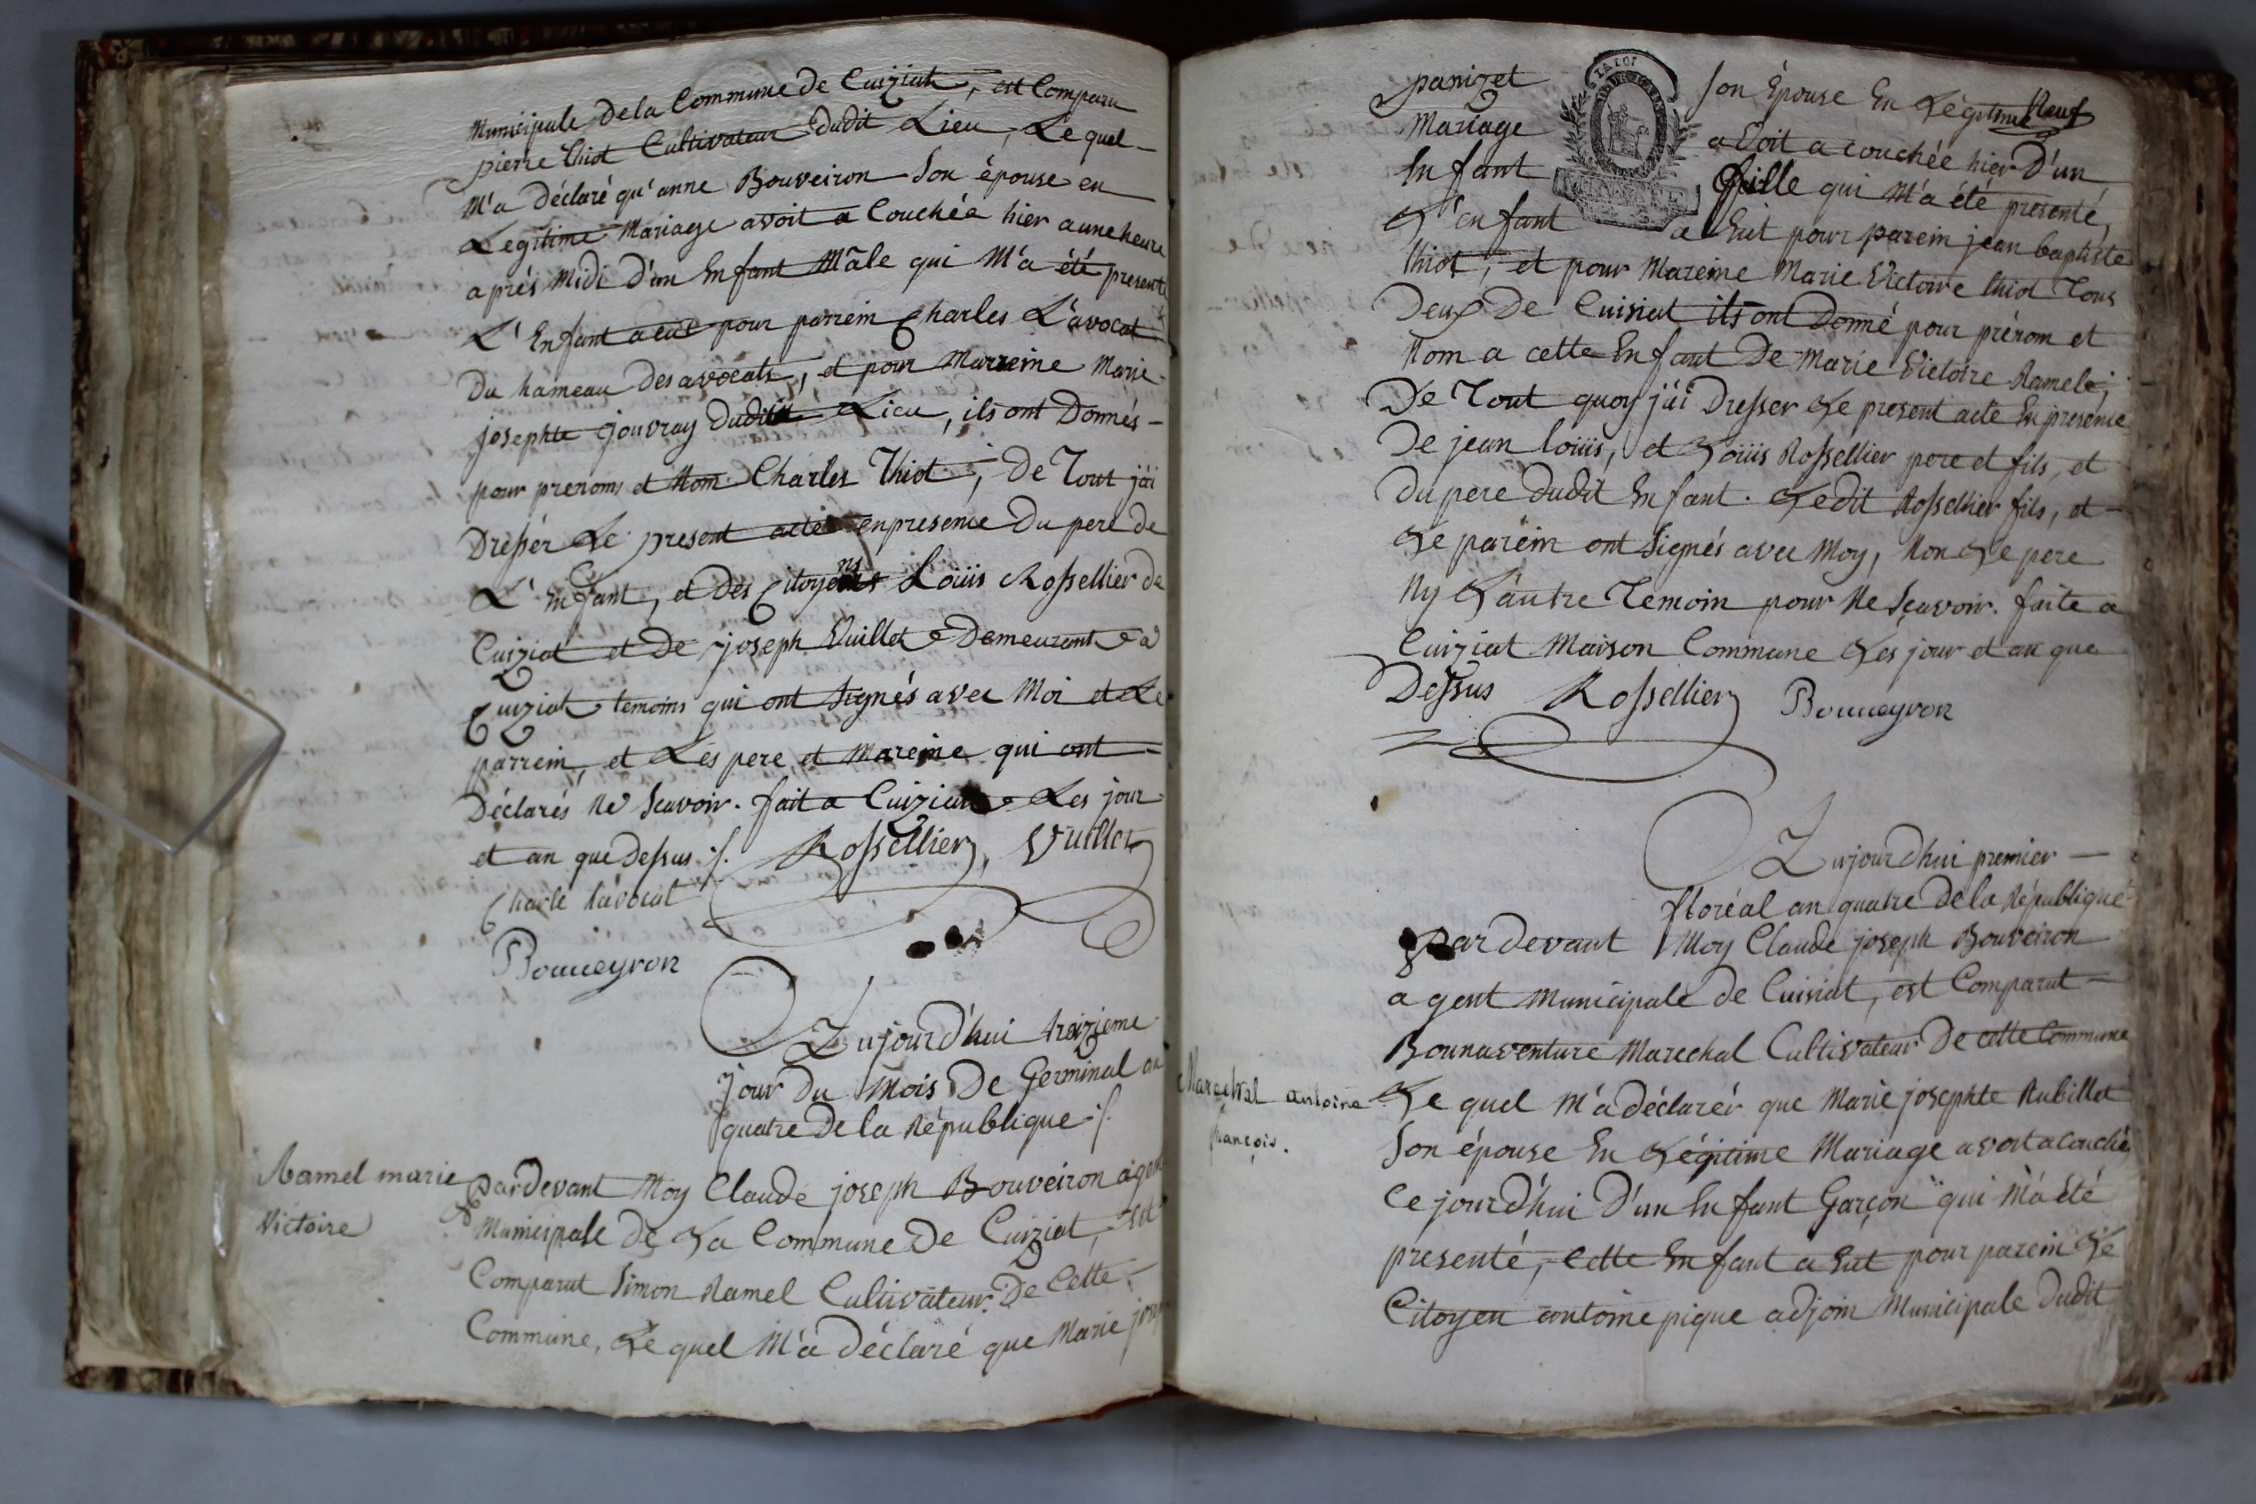 Municipale De la Commune De Cuiziat, est Comparu
pierre thiot Cultivateur Dudit Lieu, Le quel
M'a Déclaré qu'anne Bouveiron Son épouse en
Legitime Mariage avoit a Couchée hier a une heure
aprés Midi D'un Enfant Mâle qui M'a été presenté
L'Enfant a eut pour parrein Charles L'avocat
Du hameau des avocats, et pour Marreine Marie
josephte jouvray Dudit Lieu, ils ont Donnés
pour prenoms et Nom Charles Thiot, De Tout j'ai
Dressér Le present acte en presence Du pere de
L'Enfant, et Des Citoyens Loüis Rossellier de
Cuiziat et De joseph Vuillet Demeurant a
Cuiziat temoins qui ont Signés avec Moi et Le
parrein, et Les pere et Mareine qui ont
Déclarés Ne Scavoir. fait a Cuiziat Les jour
et an que Dessus ./.
Rossellier, Vuillet
Charle lavocat
Bouueyron
Aujourd'hui treizieme
jour Du Mois De Germinal an
quatre De la République ./.
Ramel marie
Victoire
pardevant Moy Claude joseph Bouveiron agent
Municipale De La Commune De Cuiziat, est
Comparut Simon Ramel Cultivateur De Cette
Commune, Le quel M'a Déclaré que Marie
Neuf
LA LOI
panizet Son Épouse En Légitime
Mariage avoit a couchée hier D'un
Enfant fille qui M'a été presenté,
L'enfant a Eut pour parein jean baptiste
thiot, et pour Mareine Marie Victoire thiot Tous
Deux De Cuisiat ils ont Donné pour prénom et
Nom a cette Enfant De Marie Victoire Ramel
De Tout quoy j'ai Dresser Le present acte En presence
De jean loüis, et Loüis Rossellier pere et fils, et
Du pere Dudit Enfant. Ledit Rossellier fils, et
Le parein ont Signés avec Moy, Non Le pere
Ny L'autre Temoin pour Ne Sçavoir. faite a
Cuiziat Maison Commune Les jour et an que
Dessus Rossellier Bouueyron
Aujourd'hui premier
floréal an quatre De la République
Par devant Moy Claude joseph Bouveiron
agent Municipale de Cuisiat, est Comparut
Bounaventure Marechal Cultivateur De cette Commune
Marechal antoine
françois.
Le quel M'a déclarér que Marie josephte Rubillet
Son épouse En Légitime Mariage avoit a couché
Ce jourd'hui D'un Enfant Garçon qui M'a Été
presenté, Cette Enfant a Eut pour parein Le
Citoyen antoine pique adjoin Municipale Dudit